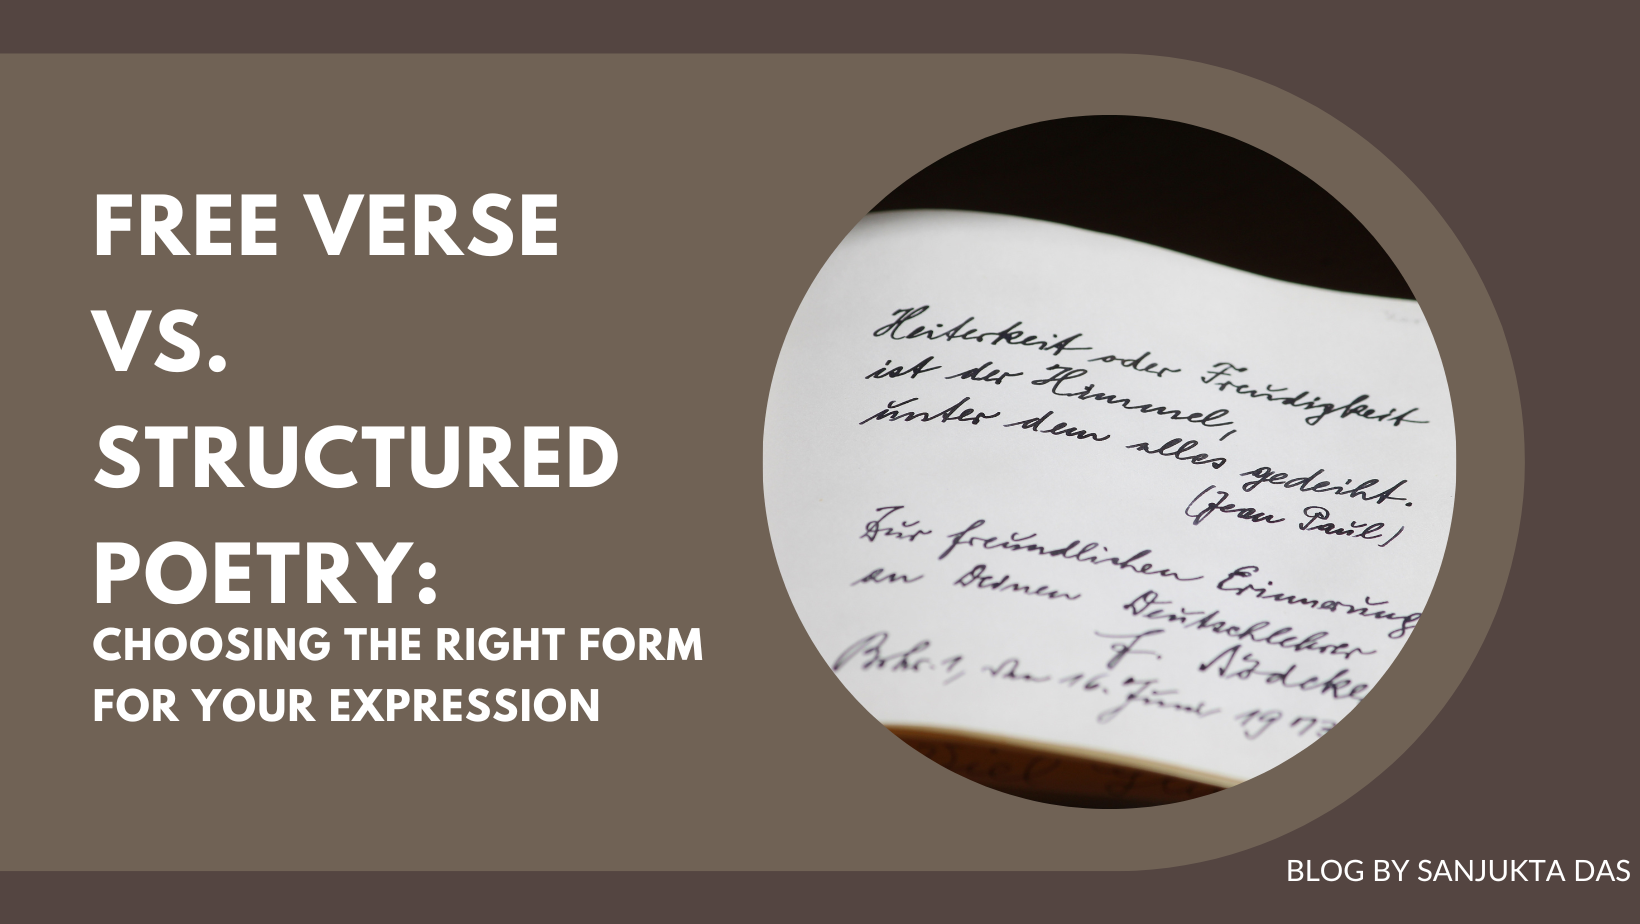 FREE VERSE
VS.
STRUCTURED
POETRY:
CHOOSING THE RIGHT FORM
FOR YOUR EXPRESSION
Heiterkeit oder Freudigkeit
ist der Himmel,
unter dem alles gedeiht.
(Jean Paul)
Zur freundlichen Erinnerung
an Deinen Deutschlehrer
F.
den 16. Juni
BLOG BY SANJUKTA DAS